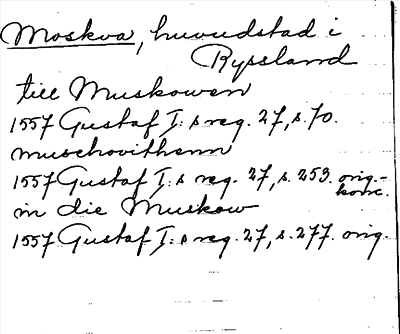 Moskva, huvudstad i
Ryssland
till Muskowen
1557 Gustaf I:s reg. 27, s. 70.
muschovithenn
1557 Gustaf I:s reg. 27, s. 253. orig.-
konc.
in die Muskow
1557 Gustaf I:s reg. 27, s. 277. orig.